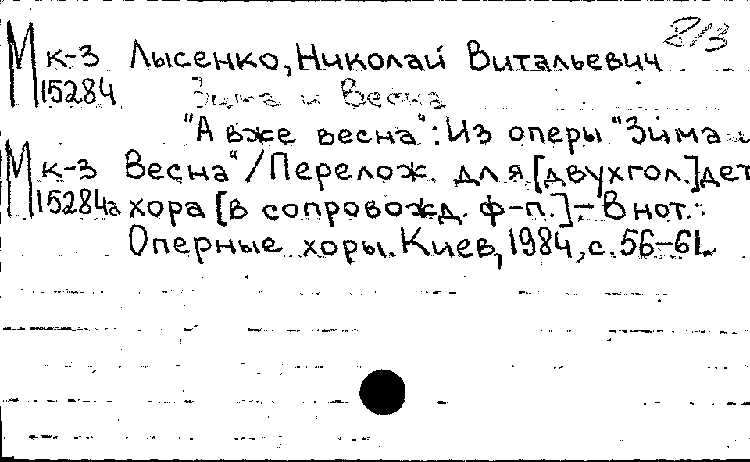 8/3
М к-3 Лысенко, Николай Витальевич
15284 Зима и Весна
"А вже весна": Из оперы "Зима и
М к-3 Весна"/Перелож. для [двухгол.] дет
15284а хора [в сопровожд. ф-п.] – В нот.:
Оперные хоры. Киев, 1984, с. 56–61.